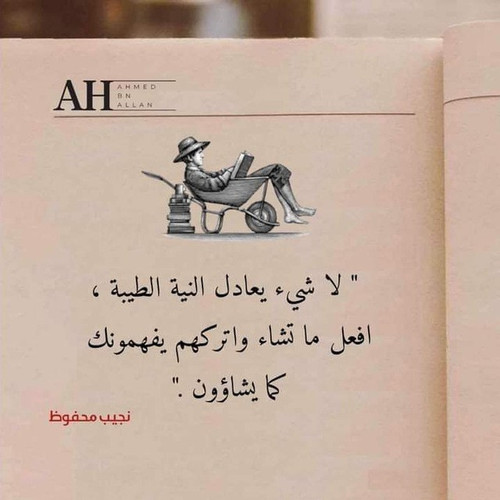 AH AHMED
BN
ALLAN
" لا شيء يعادل النية الطيبة ،
افعل ما تشاء واتركهم يفهمونك
كما يشاؤون ."
نجيب محفوظ